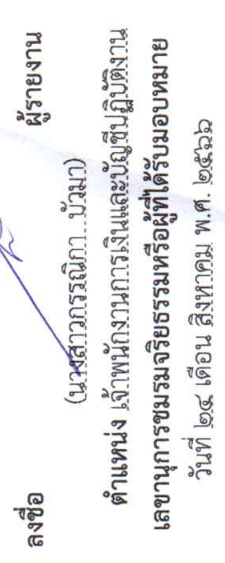 ลงชื่อ ผู้รายงาน
(นางสาวกรรณิกา บัวมา)
ตำแหน่ง เจ้าพนักงานการเงินและบัญชีปฏิบัติงาน
เลขานุการชมรมจริยธรรมหรือผู้ที่ได้รับมอบหมาย
วันที่ ๒๔ เดือน สิงหาคม พ.ศ. ๒๕๖๖